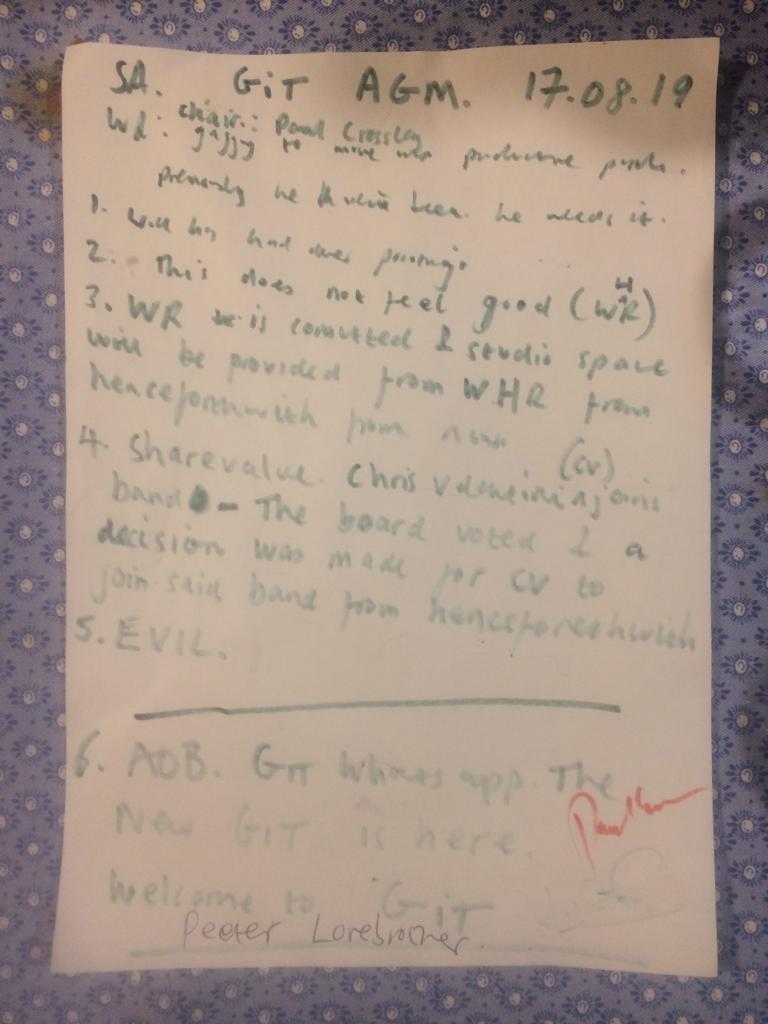 SA. GiT AGM. 17.08.19
chair: Paul Crossley
WR: to move productive
previously he needs it.
1. Will has had
2. This does not feel good (WHR)
3. WR is comitted & studio space
will be provided from WHR from
henceforthwith from
4. Sharevalue. Chris Valentini joins (CV)
band - The board voted & a
decision was made for CV to
join said band from henceforethwith
5. EVIL.
6. AOB. GiT Whats app. The
New GiT is here.
Welcome to GiT
Peeter Lorebrother.